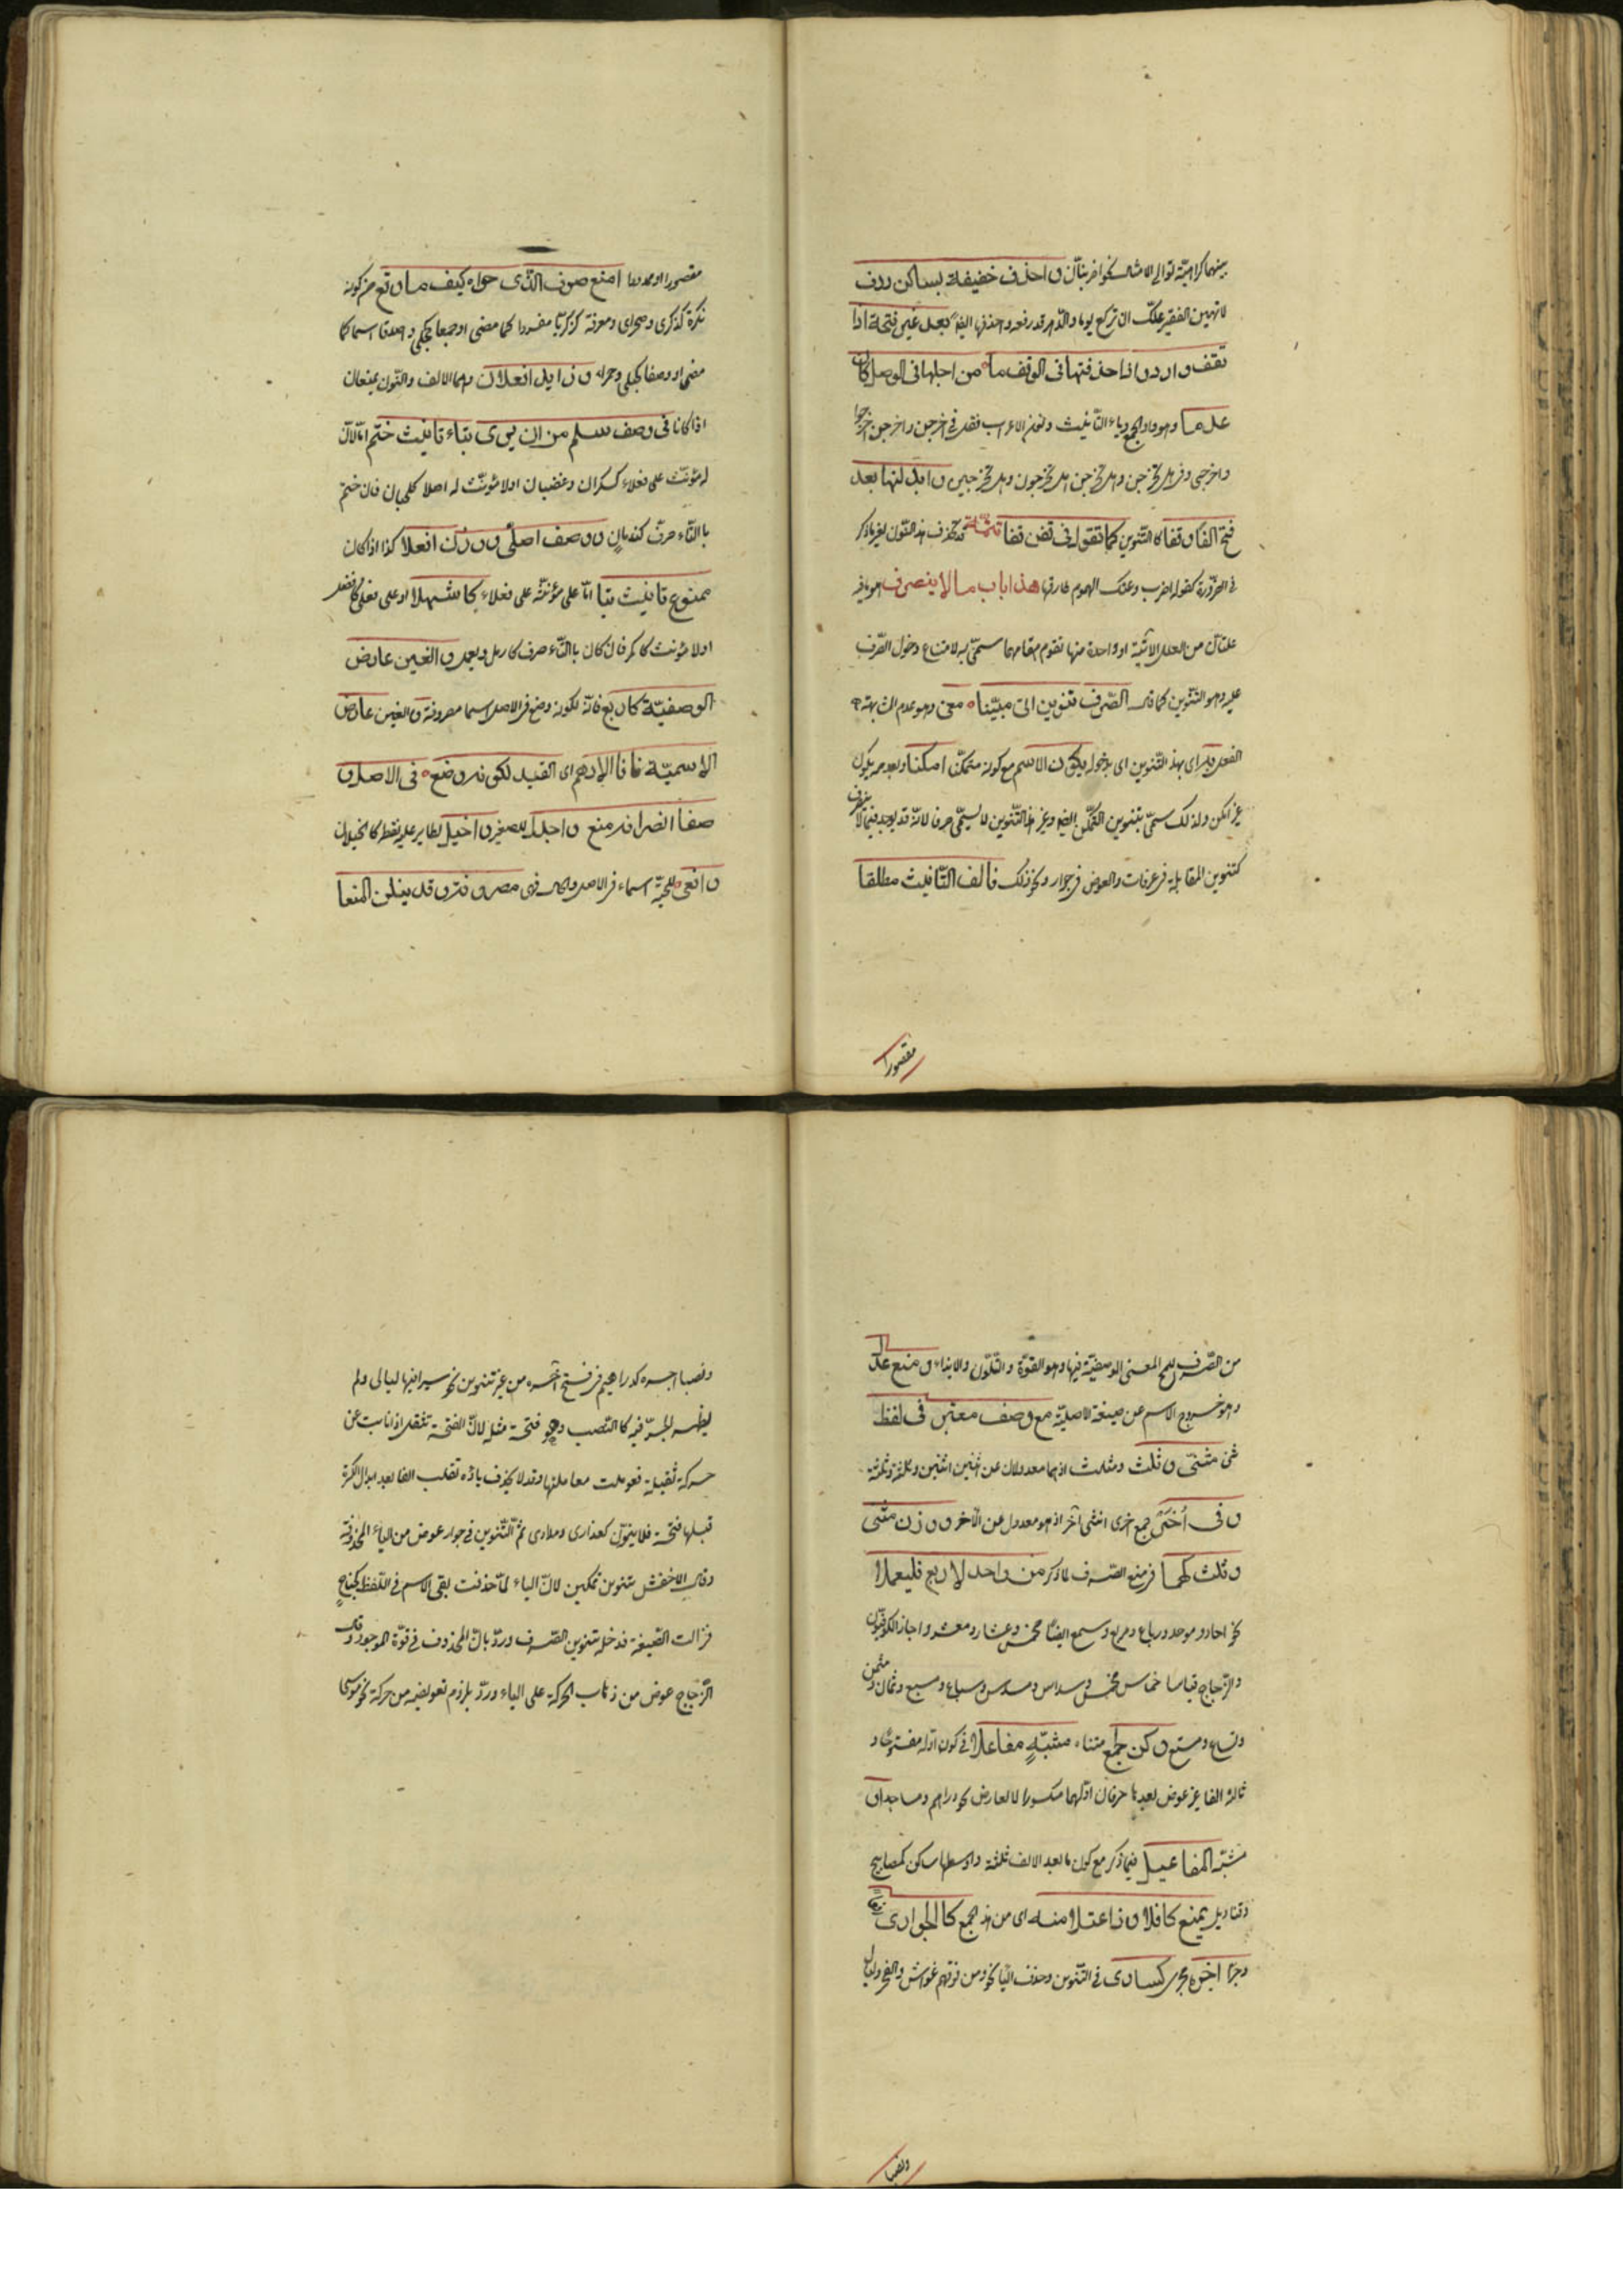 بينهما كراهية توالي الامثال نحو اضربنان واحذف خفيفة لساكن ردف
لا تهين الفقير علك ان تركع يوما والدهر قد رفعه واحذفها ايضا بعد غير فتحة اذا
تقف واردد اذا حذفتها في الوقف ما من اجلها في الوصل كان
عدما وهو واو الجمع وياء التانيث ونون الاعراب فقل في اخرجن واخرجن اخرجوا
واخرجي وفي هل تخرجن وهل تخرجن هل تخرجون وهل تخرجين وابدلنها بعد
فتح الفا وقفا كالتنوين كما تقول في قفن قفا تتمة قد تحذف هذه النون لغير ما ذكر
في الضرورة كقوله اضرب وعنك الهموم طارقها هذا باب ما لا ينصرف هو ما فيه
علتان من العلل الاتية او واحدة منها تقوم مقامهما سمي به لامتناع دخول الصرف
عليه وهو التنوين كما قال الصرف تنوين اتى مبينا معنى وهو عدم المشابهة
الفعل به اي بهذا التنوين اي بدخوله يكون الاسم مع كونه متمكنا امكنا وبعدمه يكون
غير امكن ولذلك سمي بتنوين التمكن ايضا وغير هذا التنوين لا يسمى صرفا لانه قد يوجد فيما لا ينصرف
كتنوين المقابلة في عرفات والعوض في جوار ونحو ذلك فالف التانيث مطلقا
مقصورا
مقصورا او ممدودا منع صرف الذي حواه كيف ما وقع من كونه
نكرة كذكرى وصحراء ومعرفة كزكريا مفردا كما مضى او جمعا كحجلى واصدقا اسما كما
مضى او وصفا كحبلى وحمراء وزايدا فعلان وهما الالف والنون يمنعان
اذا كانا في وصف سلم من ان يرى بتاء تانيث ختم اما لان
له مؤنث على فعلاء كسكران وغضبان او لا مؤنث له اصلا كلحيان فان ختم
بالتاء صرف كندمان ووصف اصلي ووزن افعلا كذا اذا كان
ممنوع تانيث بتا اما على مؤنثه على فعلاء كاشهلا او على فعلى كافضل
او لا مؤنث كاكمر فان كان بالتاء صرف كارمل ويعمل والغين عارض
الوصفية كاربع فانه لكونه وضع في الاصل اسما مصروفة والغين عارض
الاسمية فانا الادهم اي القيد لكونه وضع في الاصل و
صفا انصرافه منع واجدل للصقر واخيل لطاير عليه نقط كالخيلان
وافعى للحية اسماء في الاصل والحال فهي مصروفة وقد ينلن المنعا
من الصرف للمح المعنى الوصفية فيها وهو القوة والتلون والايذاء ومنع عدل
وهو خروج الاسم عن صيغة الاصلية مع وصف معتبر في لفظ
مثنى وثلث ومثلث اذ هما معدولان عن اثنين اثنين وثلثة وثلثة
وفي اخر جمع اخرى انثى اخر اذ هو معدول عن الاخر ووزن مثنى
وثلث كهما في منع الصرف لما ذكر من واحد لاربع فليعلما
نحو احاد وموحد ورباع ومربع وسمع ايضا مخمس وعشار ومعشر واجاز الكوفيون
والزجاج قياسا خماس مخمس وسداس ومسدس وسباع ومسبع وثمان ومثمن
وتساع ومتسع وكن لجمع متناه مشبه مفاعلا في كون اوله مفتوحا و
ثالثه الفا غير عوض بعدها حرفان اولهما مكسورا لا لعارض نحو دراهم ومساجد او
مشبه المفاعيل فيما ذكر مع كون ما بعد الالف ثلثة واوسطها ساكن كمصابيح
وقناديل بمنع كافلا وذا اعتلال منه اي من هذا الجمع كالجواري رفعا
وجرا اجره مجرى كساري في التنوين وحذف اليا نحو ومن فوقهم غواش والفجر وليال
ونصبا
ونصبا اجره كدراهم في فتح اخره من غير تنوين نحو سيروا فيها ليالي ولم
يظهر الجر فيه كالنصب وهو فتحة مثله لان الفتحة تثقل اذا نابت عن
حركة ثقيلة فعوملت معاملتها وقد لا يحذف ياؤه تقلب الفا بعد ابدال الكسرة
قبلها فتحة فلا ينون كعذارى ومدارى ثم التنوين في جوار عوض من الياء المحذوفة
وقال الاخفش تنوين تمكين لان الياء لما حذفت بقي الاسم في اللفظ كجناح
فزالت الصيغة فدخله تنوين الصرف ورد بان المحذوف في قوة الموجود وقال
الزجاج عوض من ذهاب الحركة على الياء ورد بلزوم تعويضه من حركة نحو موسى